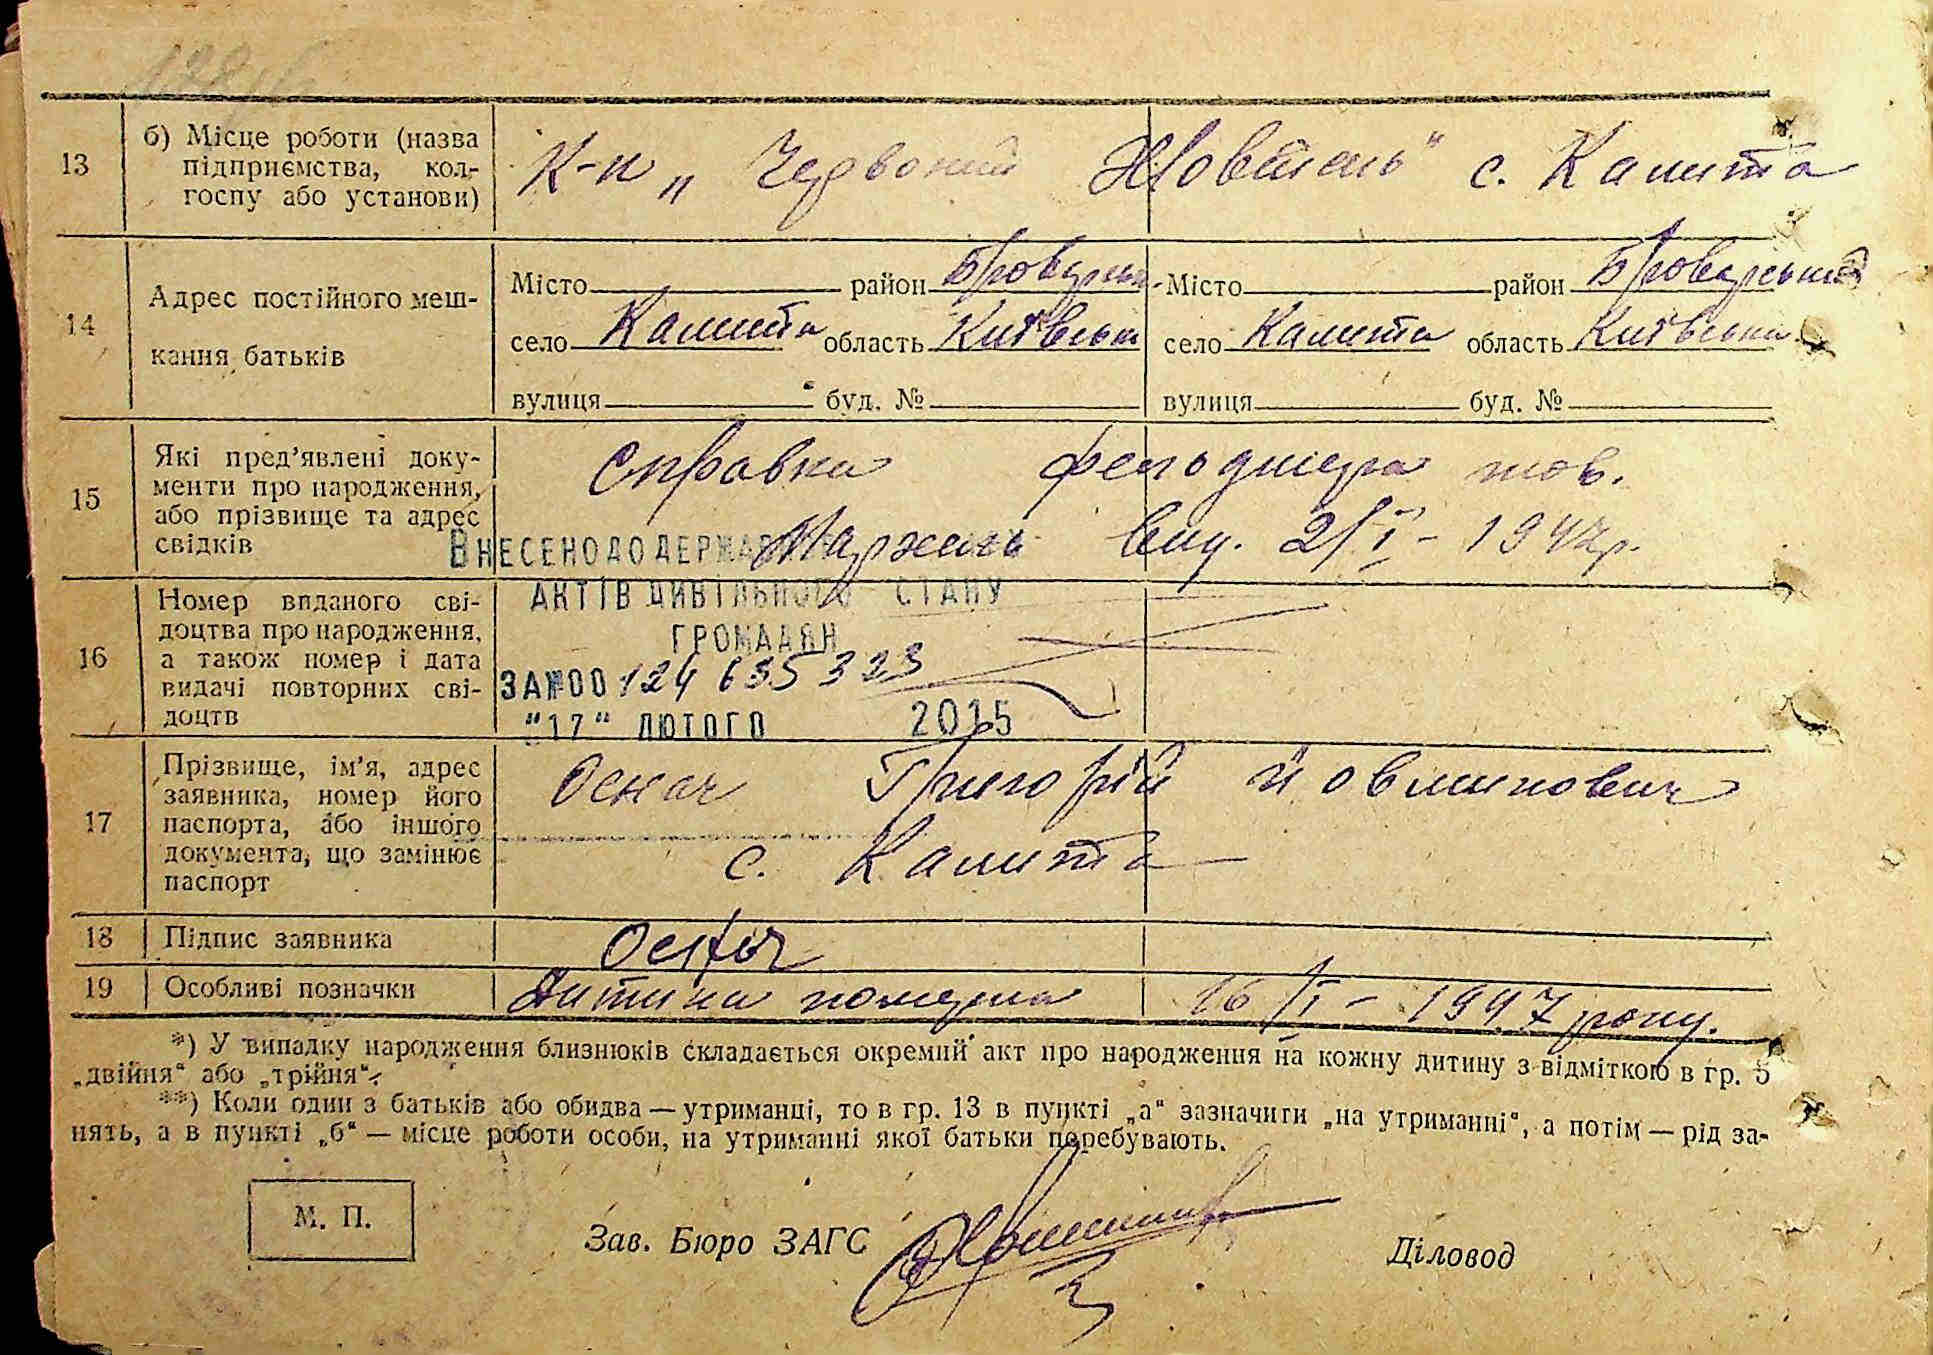 13
б) Місце роботи (назва
підприємства, кол-
госпу або установи)
К-п „Червоний Жовтень" с. Калита
14
Адрес постійного меш-
кання батьків
Місто район Броварськ.
село Калита область Київська
вулиця буд. №
Місто район Броварський
село Калита область Київська
вулиця буд. №
15
Які пред'явлені доку-
менти про народження,
або прізвище та адрес
свідків
Справка фельдшера тов.
вид. 2/I - 1947р.
16
Номер виданого сві-
доцтва про народження,
а також номер і дата
видачі повторних сві-
доцтв
ВНЕСЕНО ДО ДЕРЖАВ
АКТІВ ЦИВІЛЬНОГО СТАНУ
ГРОМАДЯН
ЗА №00124635323
"17" ЛЮТОГО 2015
17
Прізвище, ім'я, адрес
заявника, номер його
паспорта, або іншого
документа, що замінює
паспорт
Оснач Григорій Йовминович
с. Калита
18
Підпис заявника
Оснач
19
Особливі позначки
Дитина померла 16/I - 1947 року.
*) У випадку народження близнюків складається окремий акт про народження на кожну дитину з відміткою в гр. 5
„двійня" або „трійня".
**) Коли один з батьків або обидва — утриманці, то в гр. 13 в пункті „а" зазначити „на утриманні", а потім — рід за-
нять, а в пункті „б" — місце роботи особи, на утриманні якої батьки перебувають.
М. П.
Зав. Бюро ЗАГС
Діловод